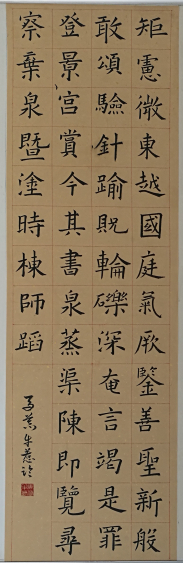 矩憲微東越國庭氣厥鑒善聖新般
敢頌驗針踰貺輪礫深奄言竭是罪
登景宮賞今其書泉蒸渠陳即覽尋
察棄泉暨塗時棟師蹈